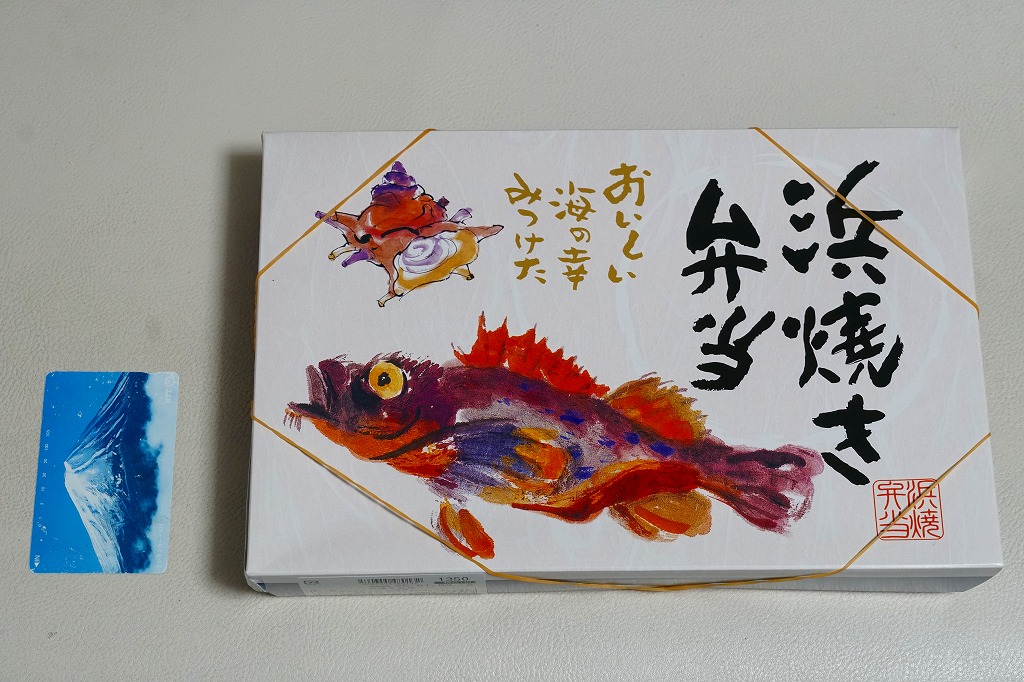 浜焼き
弁当
おいしい
海の幸
みつけた
浜焼
弁当
1350